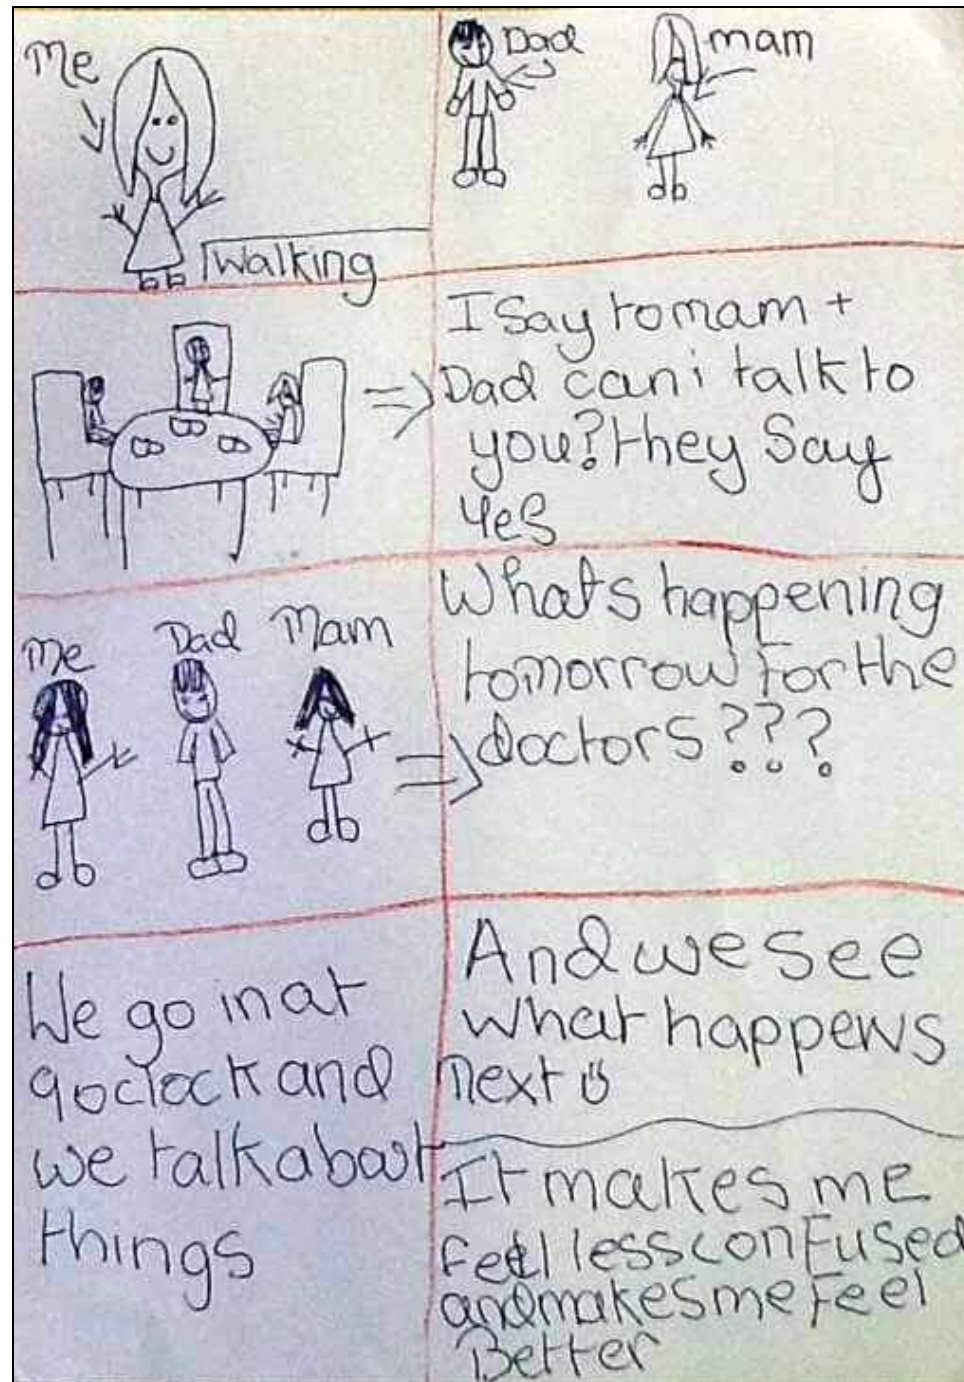 Me
Walking
Dad
mam
I Say to mam +
Dad can i talk to
you? they Say
Yes
Me
Dad
Mam
Whats happening
tomorrow For the
doctors???
We go in at
9 oclock and
we talk about
things
And we see
what happens
next
It makes me
feel less conFused
and makes me Feel
Better